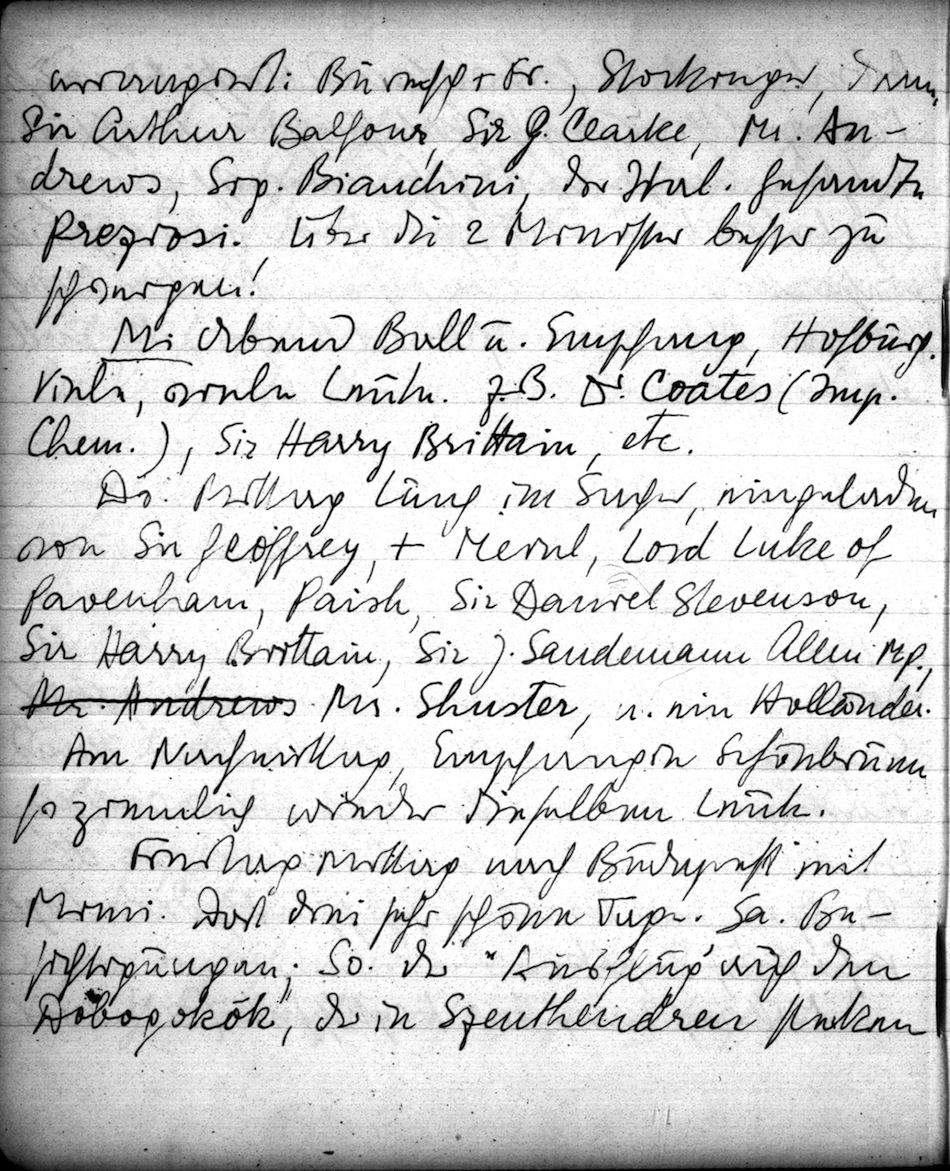 arrangiert: Buresch + Fr., Stockinger,
Sir Arthur Balfour, Sir G. Clarke, Mr. An-
drews, Sig. Bianchini, der Ital. Gesandte
Preziosi. Über die 2 Minister besser zu
schweigen!
Mi Abend Ball u. Empfang, Hofburg.
Viele, viele Leute. z.B. Dr. Coates (Imp.
Chem.), Sir Harry Brittain, etc.
Do. Mittag Lunch im Sacher, eingeladen
von Sir Geoffrey, + Meinl, Lord Luke of
Pavenham, Paish, Sir Daniel Stevenson,
Sir Harry Brittain, Sir J. Sandemann Allen MP.,
Mr. Andrews Mr. Shuster, u. ein Holländer.
Am Nachmittag, Empfang in Schönbrunn
so ziemlich wieder dieselben Leute.
Freitag mittag nach Budapest mit
Mimi. Dort drei sehr schöne Tage. Sa. Be-
sichtigungen; So. der "Ausflug auf den
Dobogokök", der in Szenthendren stecken